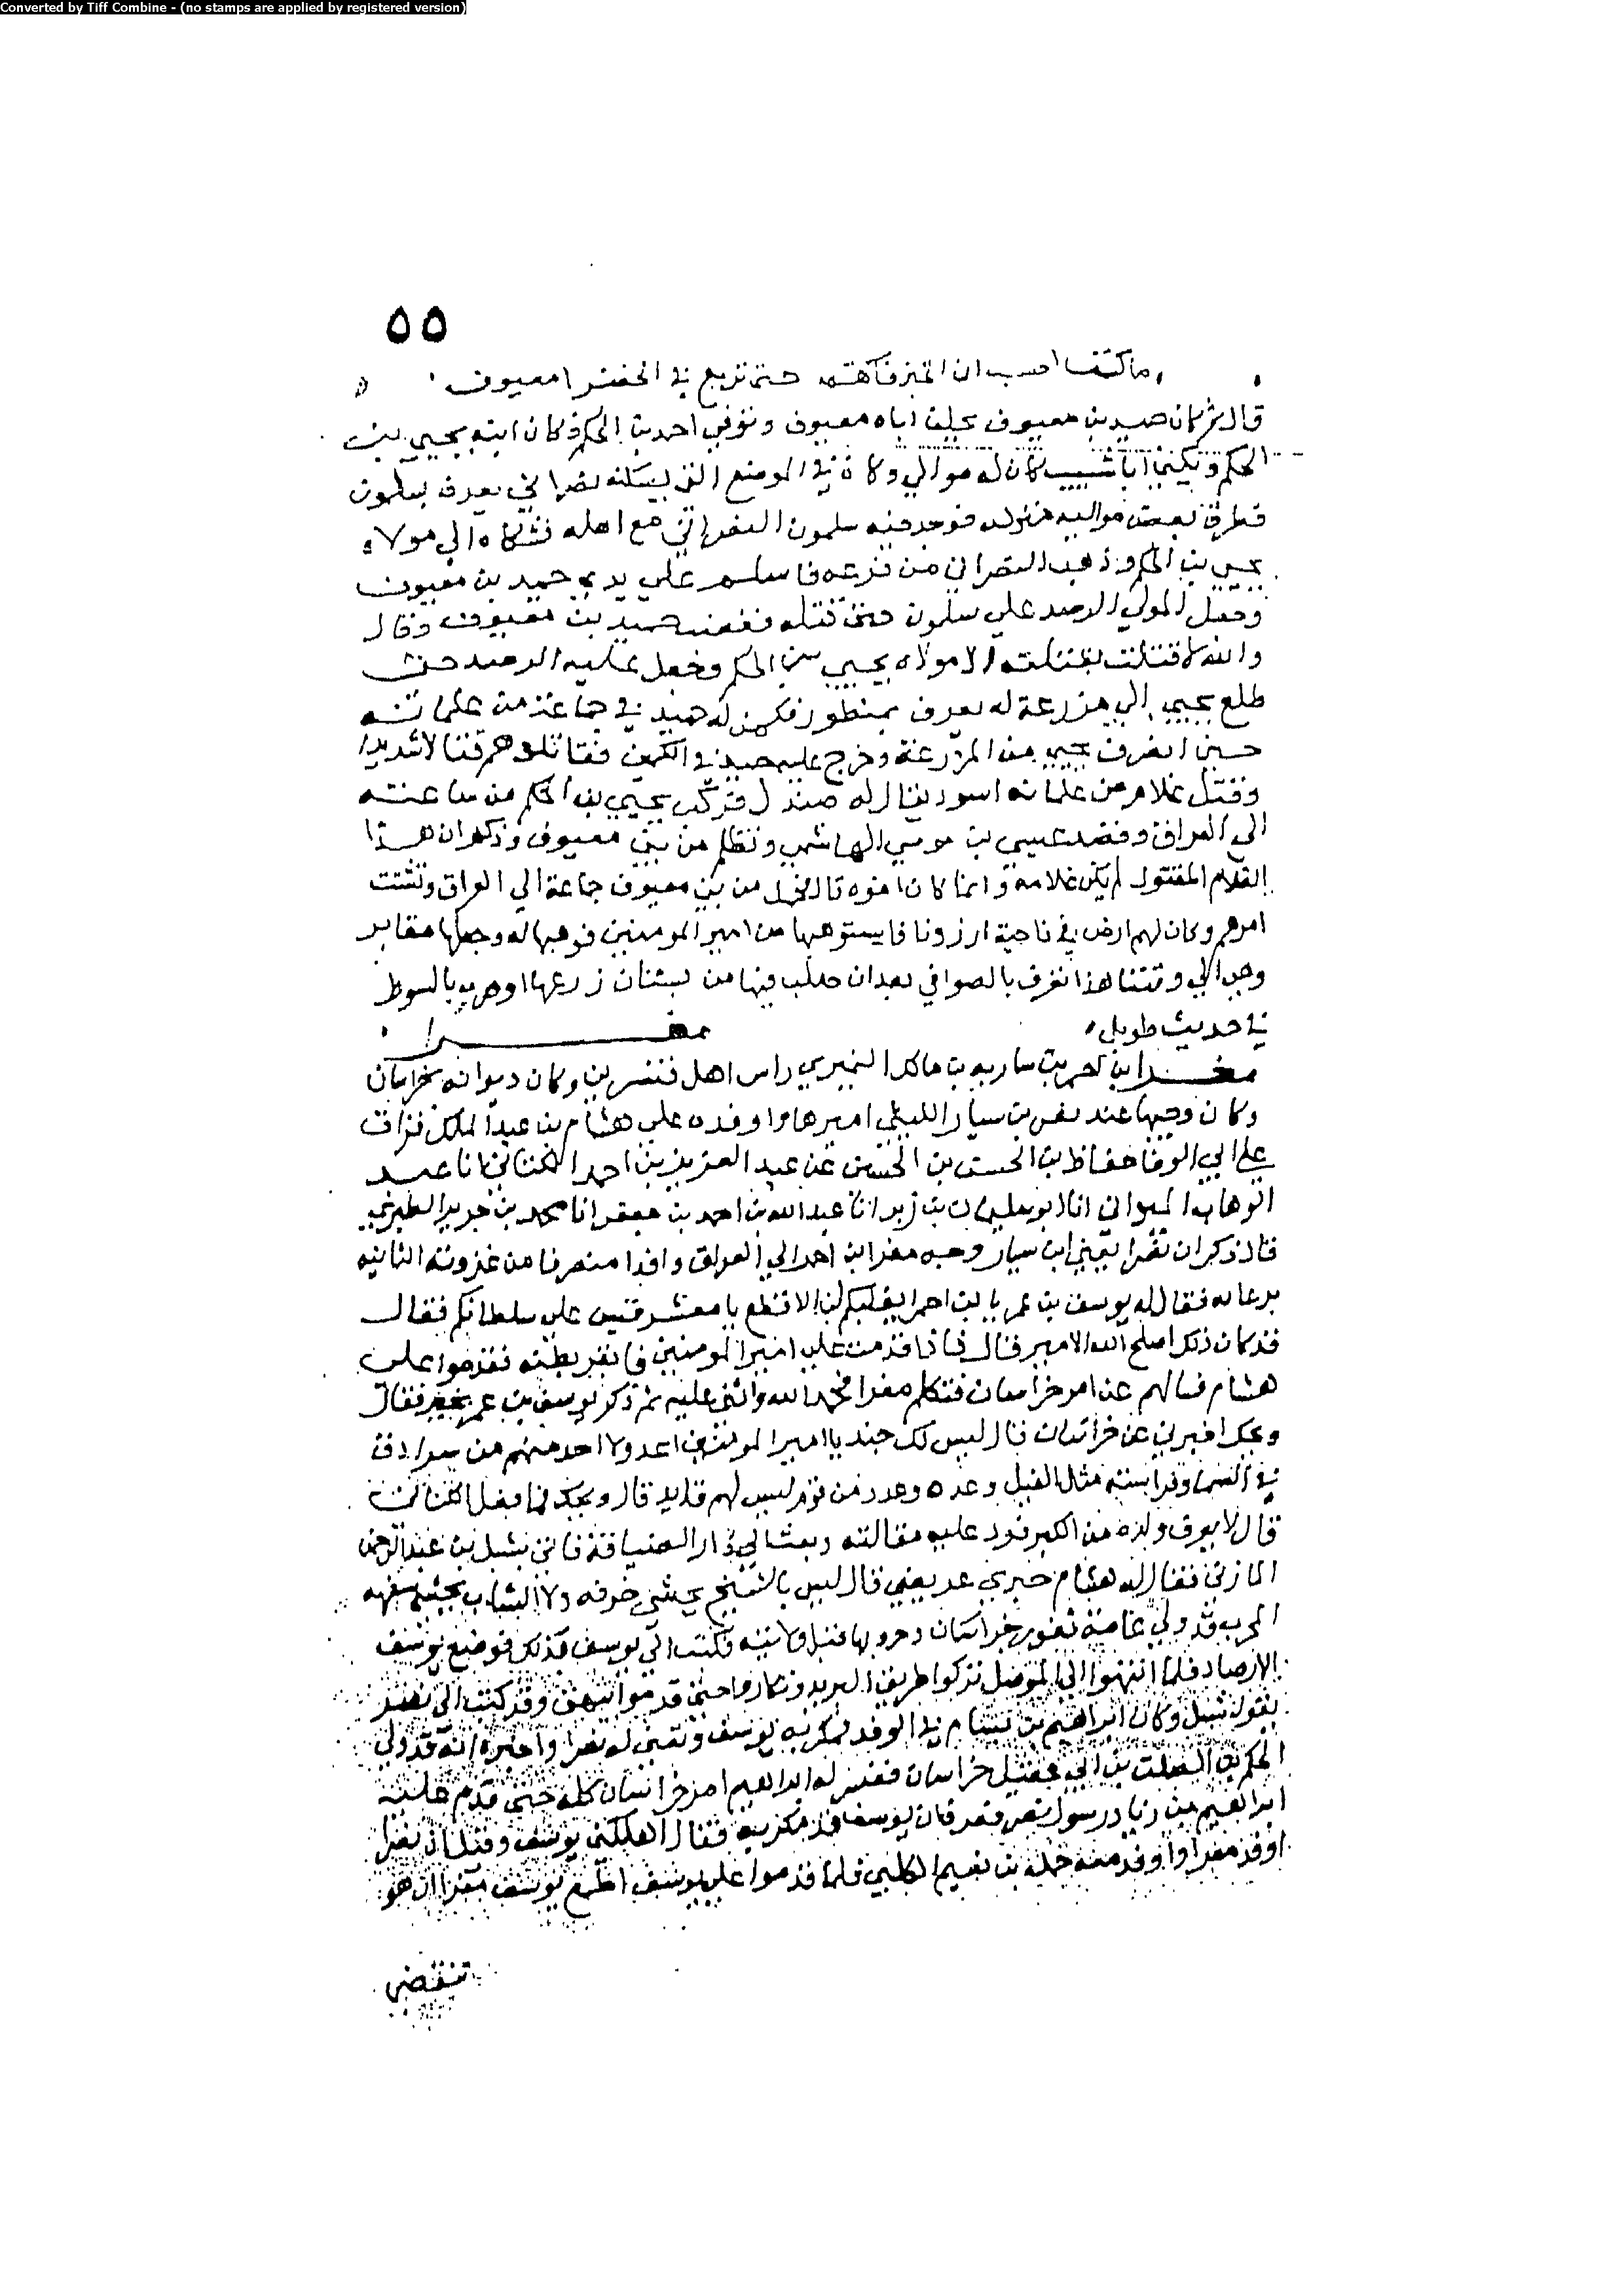 Converted by Tiff Combine - (no stamps are applied by registered version)
٥٥
ما كنت احسب ان الخبز فاكهة حتى تربع في الخضرا معيوف
قال ثم كان حميد بن معيوف يخلف اباه معيوف وتوفي احمد بن الحكم وكان ابنه يحيى بن
الحكم ويكنى ابا شبيب كان له موالي وكان في الموضع الذي يسكنه نصراني يعرف بسلمون
فطرق بعض مواليه منزله فوجد فيه سلمون النصراني مع اهله فشكاه الى مولاه
يحيى بن الحكم وذهب النصراني من فزعه فاسلم على يدي حميد بن معيوف
وجعل المولى الرصد على سلمون حتى قتله فغضب حميد بن معيوف وقال
والله لا قتلت بقتلته الا مولاه يحيى بن الحكم وجعل عليه الرصد حتى
طلع يحيى الى مزرعة له يعرف بمنظور فكمن له حميد في جماعة من غلمانه
حين انصرف يحيى من المزرعة وخرج عليه حميد في الكمين فقاتلوهم قتالا شديدا
وقتل غلام من غلمانه اسود يقال له صندل فركب يحيى بن الحكم من ساعته
الى العراق وقصد عيسى بن موسى الهاشمي وتظلم من بني معيوف وذكر ان هذا
الغلام المقتول لم يكن غلامه وانما كان اخوه قال فحمل من بني معيوف جماعة الى العراق وتشتت
امرهم وكان لهم ارض في ناحية ارزونا فاستوهبها من امير المومنين فوهبها له وجعلها مقابر
وهي الى وقتنا هذا تعرف بالصوافي بعد ان حلب فيها من بستان زرعها وضرب بالسوط
في حديث طويل
مغرا
مغرا بن احمر بن سارية بن مالك النميري راس اهل قنسرين وكان ديوانه بخراسان
وكان وجيها عند نصر بن سيار الليثي اميرها واوفده على هشام بن عبد الملك قرات
على ابي الوفا حفاظ بن الحسن بن الحسين عن عبد العزيز بن احمد الكتاني انا عبد
الوهاب الميداني انا ابو سليمان بن زبر انا عبد الله بن احمد بن جعفر انا محمد بن جرير الطبري
قال ذكر ان نصرا يعني ابن سيار وجه مغرا ابن احمر الى العراق وافدا منصرفا من غزوته الثانيه
بفرغانه فقال له يوسف بن عمر يا بن احمر ايغلبكم ابن الاقطع يا معشر قيس على سلطانكم فقال
قد كان ذلك اصلح الله الامير قال فاذا قدمت على امير المومنين فابقر بطنه فقدموا على
هشام فسالهم عن امر خراسان فتكلم مغرا فحمد الله واثنى عليه ثم ذكر يوسف بن عمر بخير فقال
ويحك اخبرني عن خراسان قال ليس لك جند يا امير المومنين اعد ولا احد منهم من سوادق
في السما وفراسنه مثل الفيل وعده وعدد من قوم ليس لهم قايد قال ويحك فما فعل الكناني
قال لا يعرف ولده من الكبر فرد عليه مقالته وبعث الى دار الضيافة فاتي بشبل بن عبد الرحمن
المازني فقال له هشام خبرني عن نصر قال ليس بالشيخ يخشى خرفه ولا الشاب يخشى سفهه
المجرب قد ولي عامة ثغور خراسان وحروبها قبل ولايته فكتب الى يوسف بذلك فوضع يوسف
الارصاد فلما انتهوا الى الموصل تركوا طريق البريد وتكاروا حتى قدموا بيهق وقد كتب الى نصر
بقول شبل وكان ابراهيم بن بسام في الوفد فمكر به يوسف ونعى له نصرا واخبره انه قد ولى
الحكم بن الصلت بن ابي عقيل خراسان فقسر له ابراهيم امر خراسان كله حتى قدم عليه
ابراهيم بن زياد رسول نصر فعرف ان يوسف قد مكر به فقال اهلكني يوسف وقيل ان نصرا
اوفد مغرا واوفد معه حملة بن نعيم الكلبي فلما قدموا على يوسف اطمع يوسف مغرا ان هو
تنقص